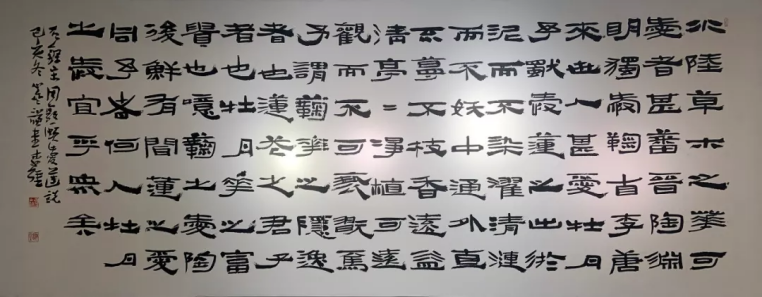 水陸草木之華可
愛者甚蕃晉陶淵
明獨愛鞠自李唐
來世人甚愛牡丹
予獨愛蓮之出於
泥而不染濯清漣
而不妖中通外直
不蔓不枝香遠益
清亭=淨植可遠
觀而不可褻翫焉
予謂鞠華之隱逸
者也蓮花之君子
者也牡丹華之富
貴者噫鞠之愛陶
後鮮有聞蓮之愛
同予者何人牡丹
之愛宜乎眾矣
宋周敦頤愛蓮説
己亥冬